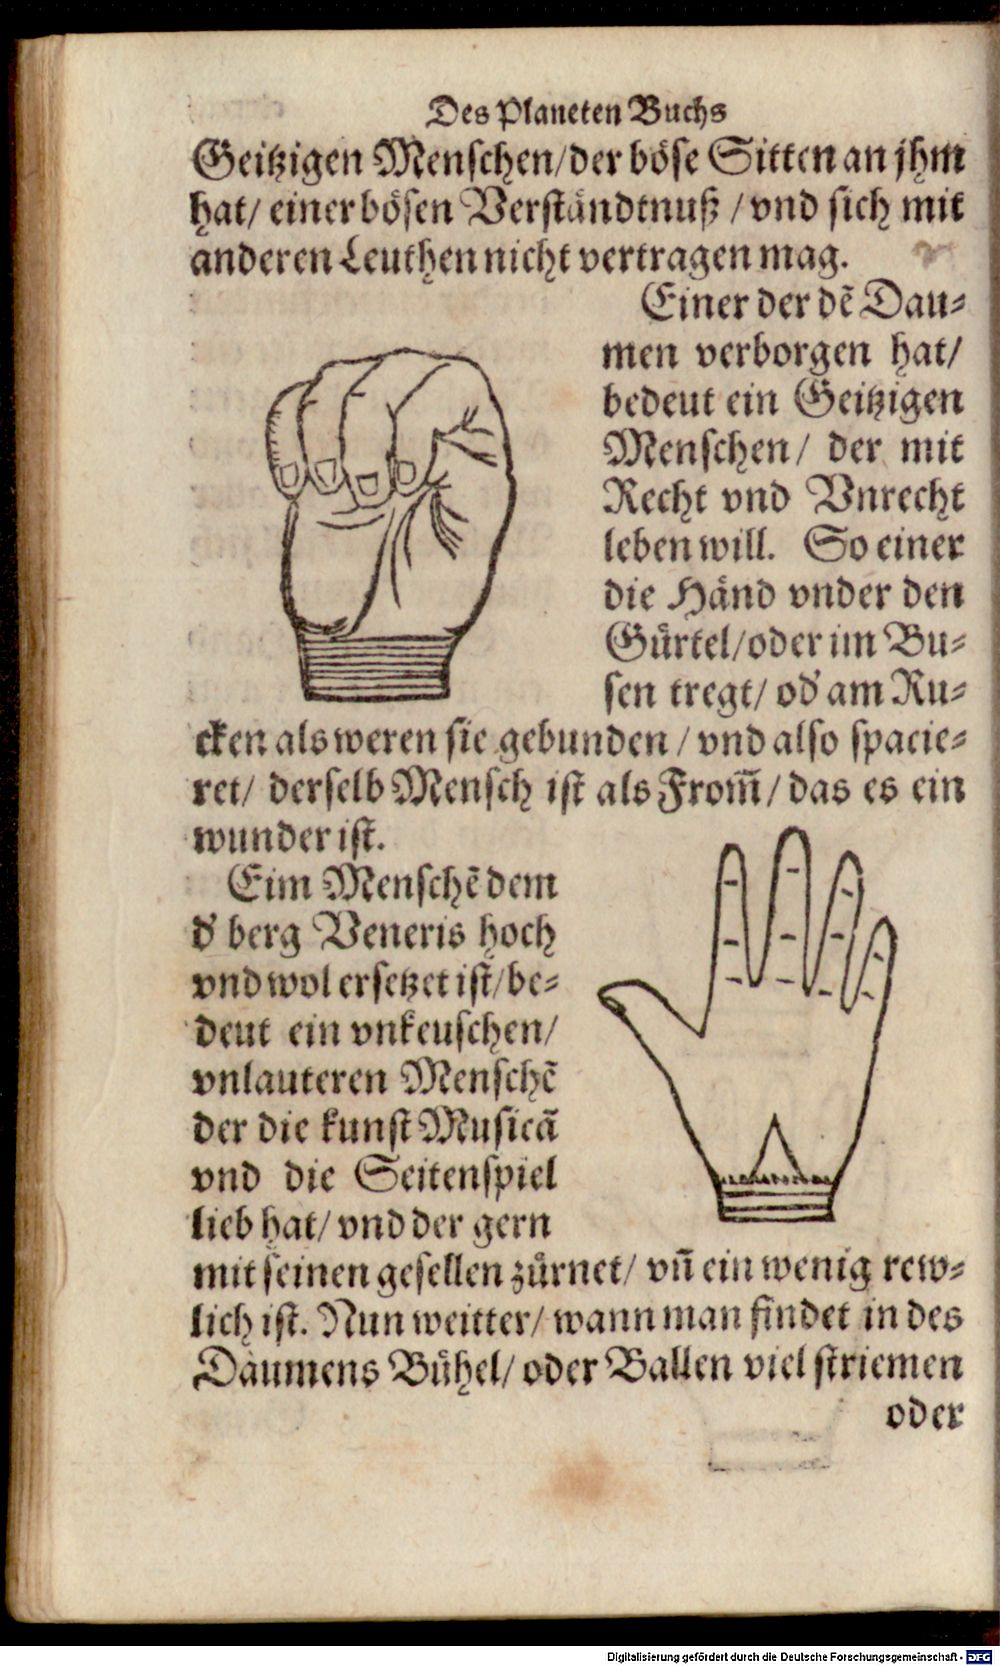 Des Planeten Buchs
Geitzigen Menschen/der böse Sitten an jhm
hat/ einer bösen Verständtnuß / vnd sich mit
anderen Leuthen nicht vertragen mag.
Einer der dẽ Dau⸗
men verborgen hat/
bedeut ein Geitzigen
Menschen/ der mit
Recht vnd Vnrecht
leben will. So einer
die Händ vnder den
Gürtel/oder im Bu⸗
sen tregt/ od' am Ru⸗
cken als weren sie gebunden / vnd also spacie⸗
ret/ derselb Mensch ist als From̃/ das es ein
wunder ist.
Eim Menschẽ dem
d' berg Veneris hoch
vnd wol ersetzet ist/be⸗
deut ein vnkeuschen/
vnlauteren Menschẽ
der die kunst Musicã
vnd die Seitenspiel
lieb hat/ vnd der gern
mit seinen gesellen zürnet/ vñ ein wenig rew⸗
lich ist. Nun weitter/ wann man findet in des
Daumens Bühel/ oder Ballen viel striemen
oder
Digitalisierung gefördert durch die Deutsche Forschungsgemeinschaft - DFG